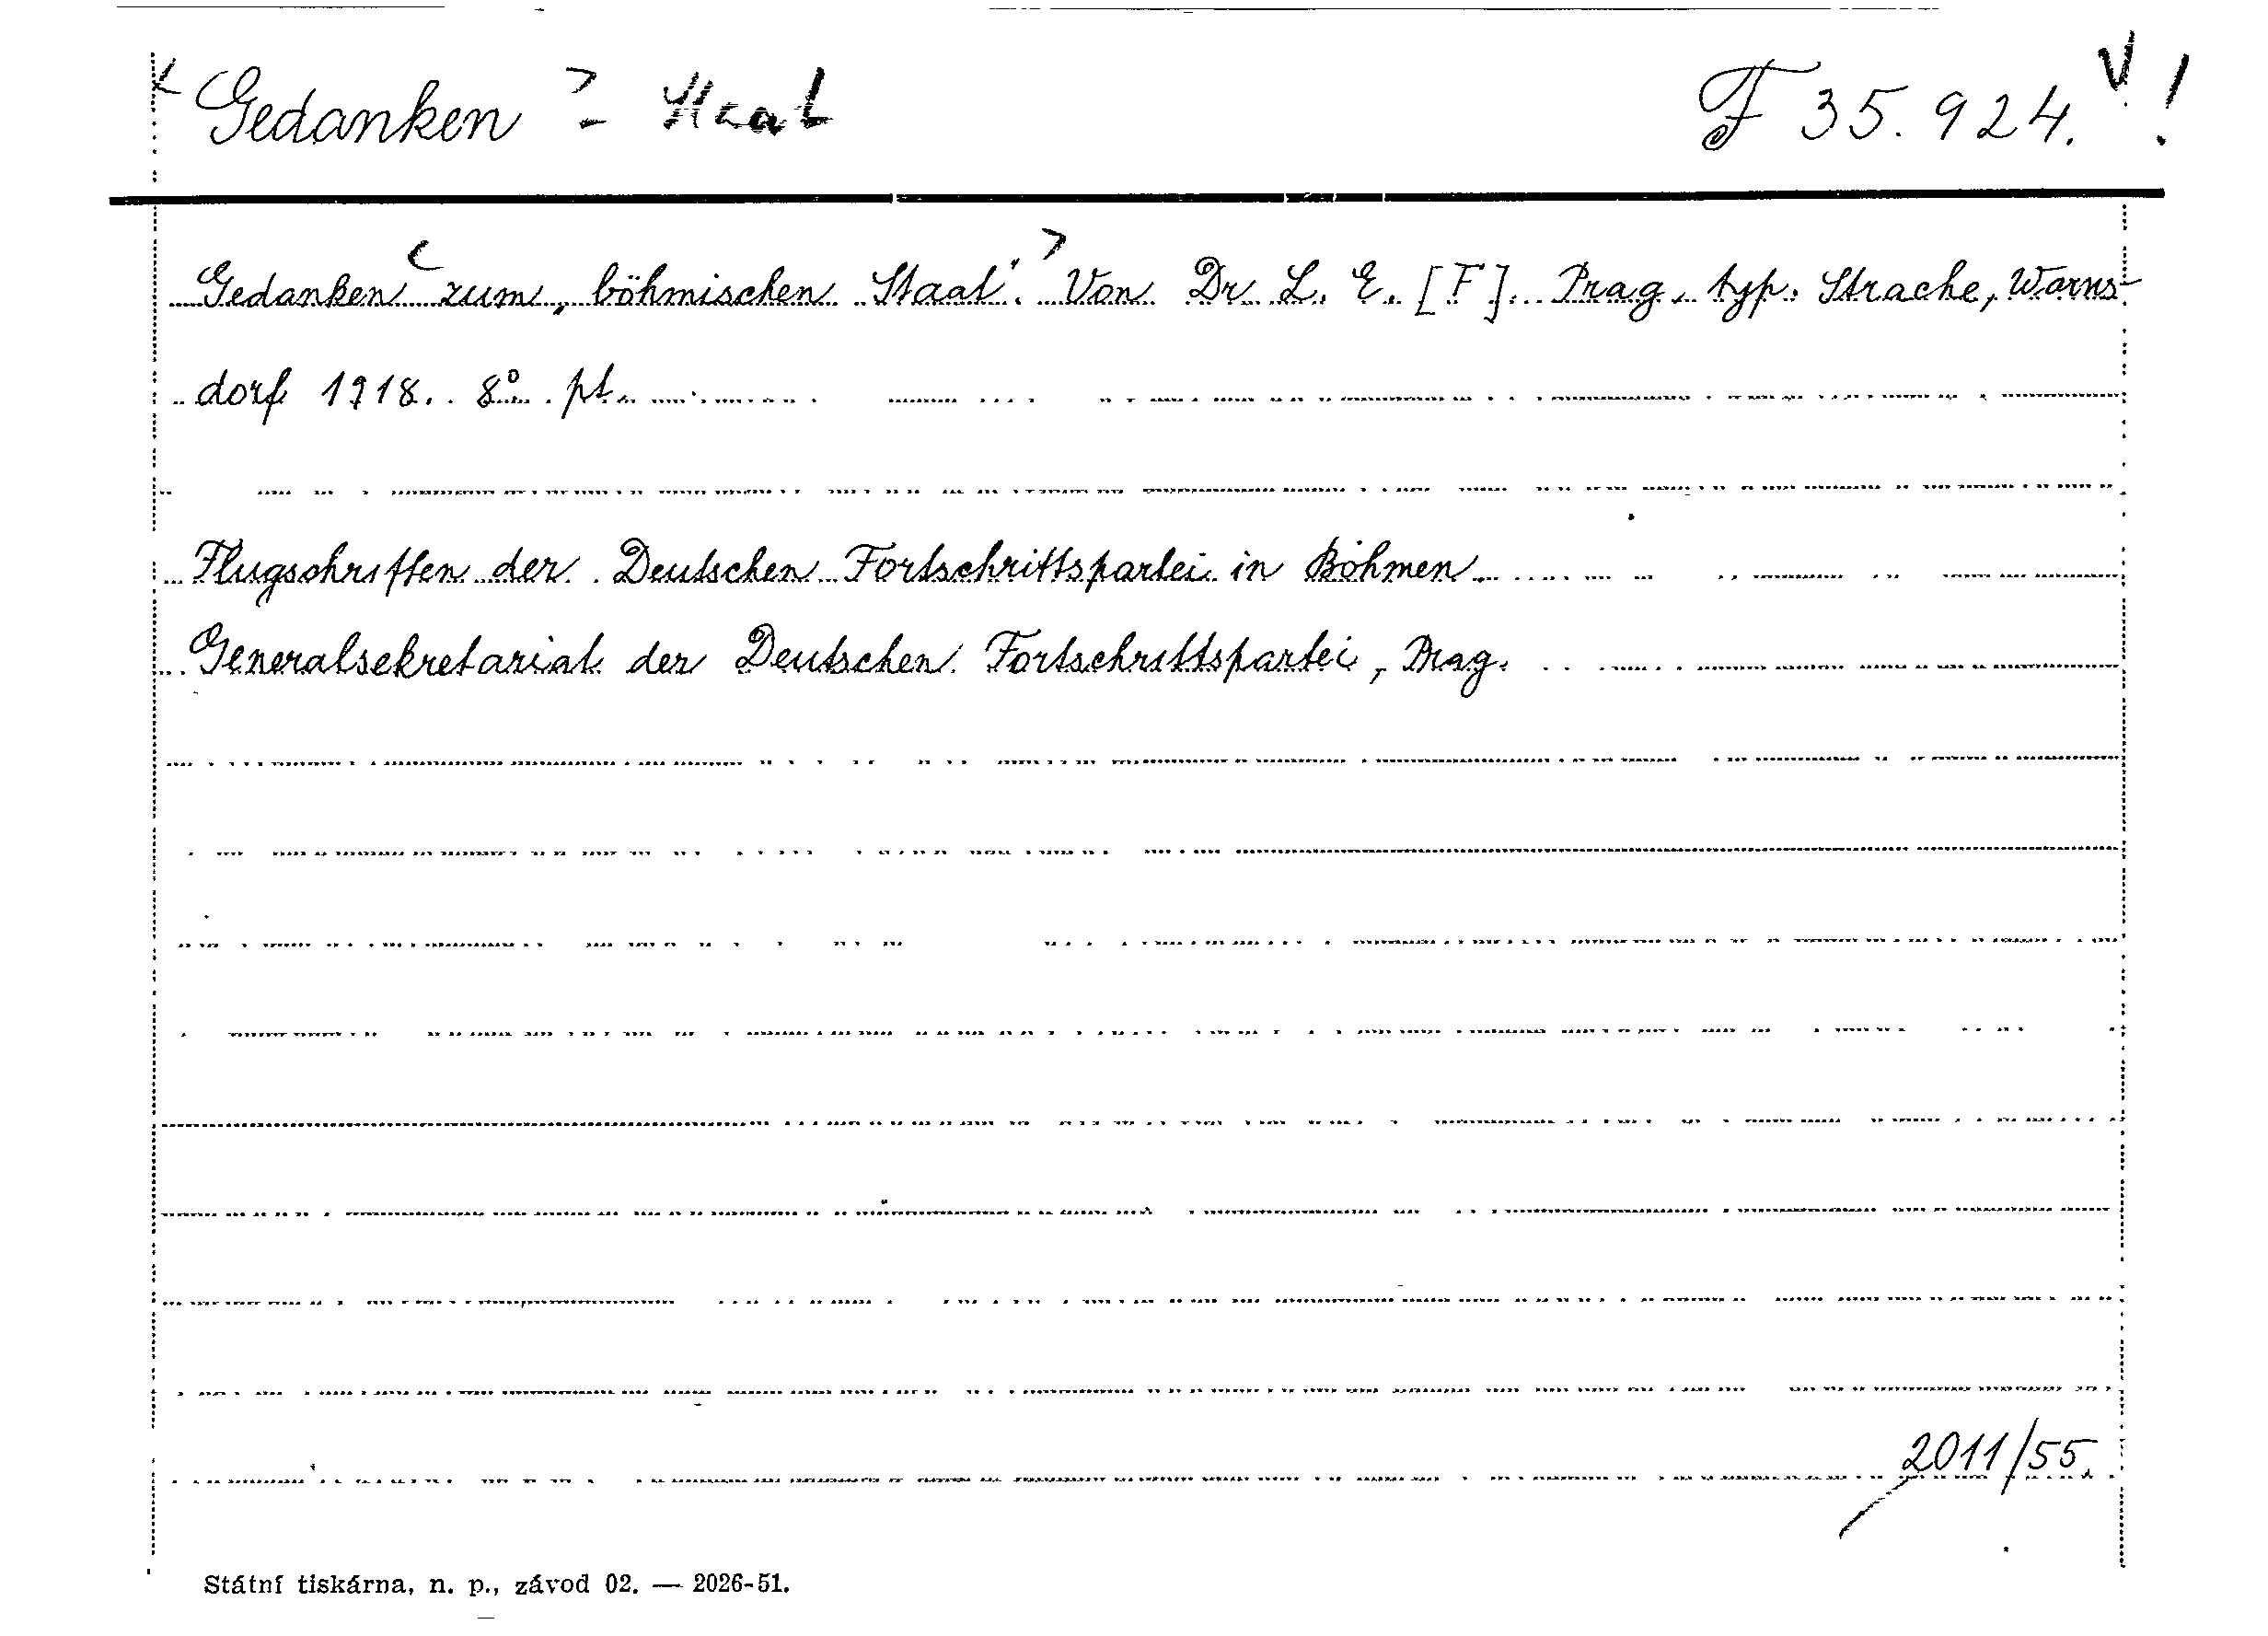 < Gedanken > - Staat F 35.924. V !
Gedanken < zum „böhmischen Staat“. > Von Dr. L. E. [F]. Prag, typ. Strache, Warns-
dorf 1918. 8° pt.
Flugschriften der Deutschen Fortschrittspartei in Böhmen
Generalsekretariat der Deutschen Fortschrittspartei, Prag.
2011/55.
Státní tiskárna, n. p., závod 02. — 2026-51.